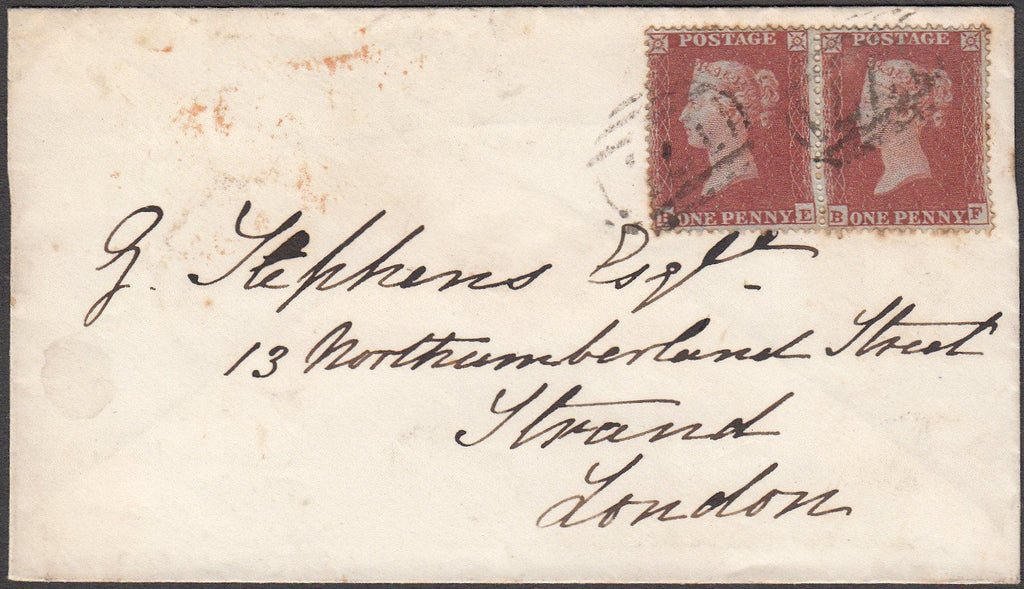 POSTAGE POSTAGE
B ONE PENNY E B ONE PENNY F
G. Stephens Esqre
13 Northumberland Street
Strand
London